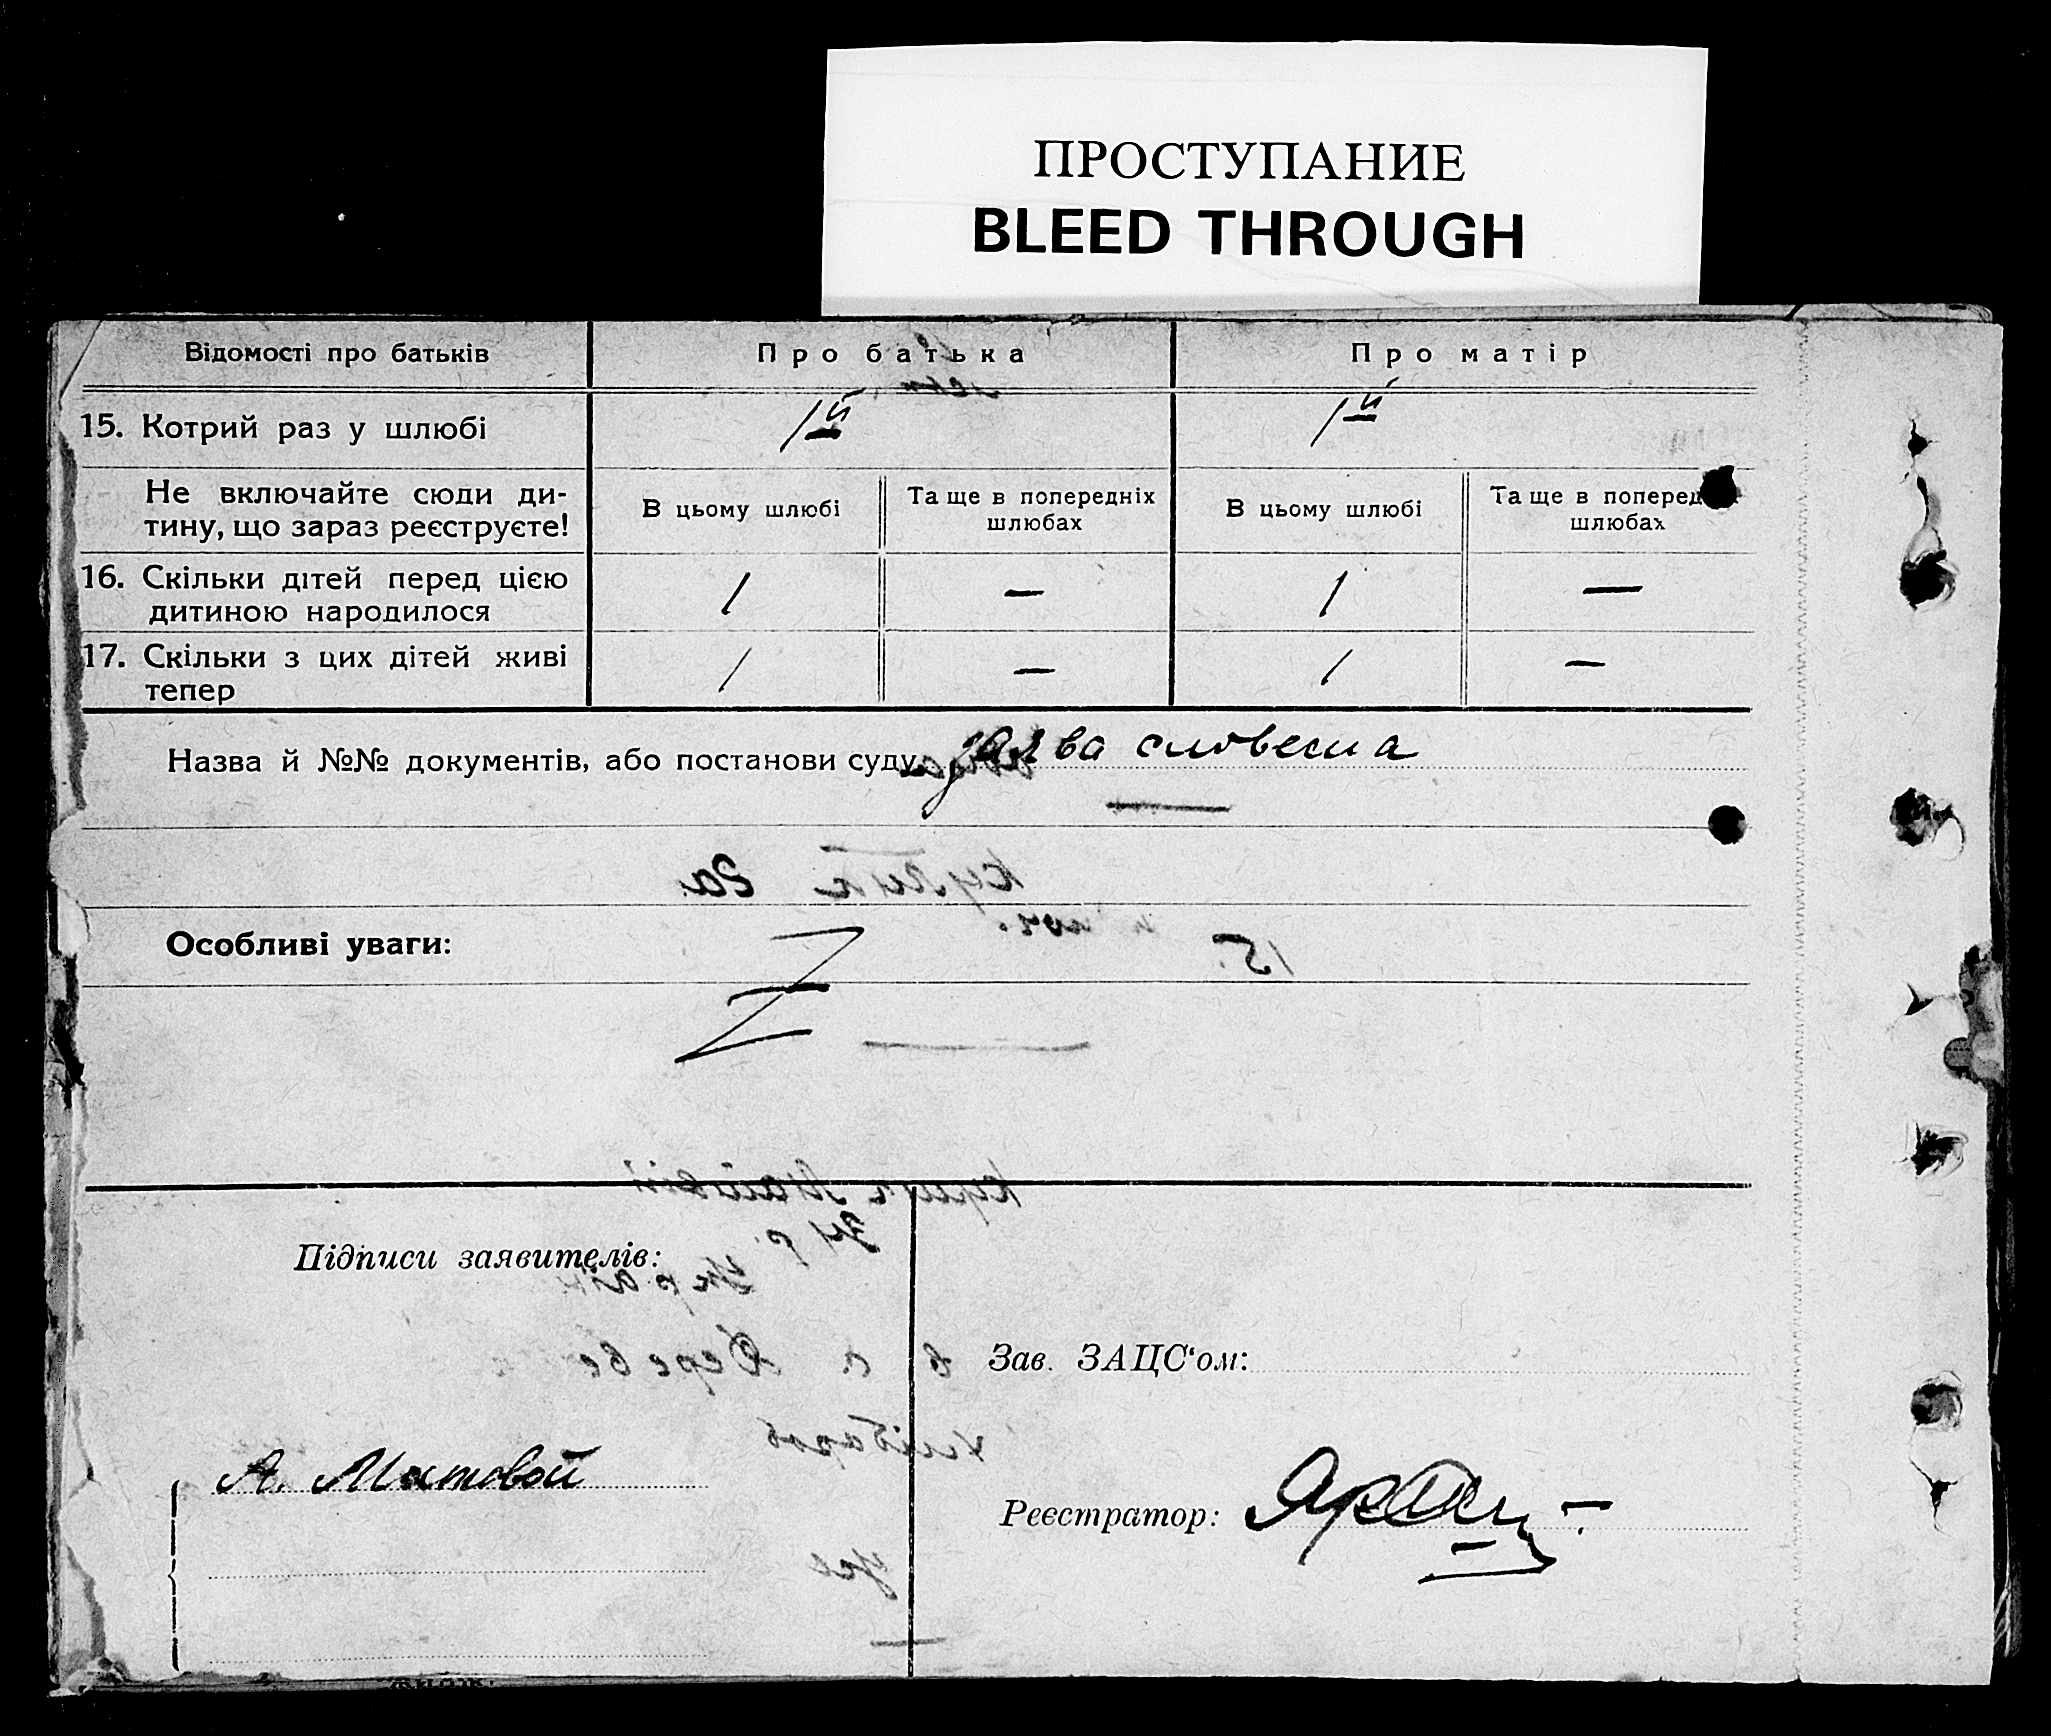 ПРОСТУПАНИЕ
BLEED THROUGH
Відомості про батьків
Про батька
Про матір
15. Котрий раз у шлюбі
1й
1й
Не включайте сюди ди-
тину, що зараз реєструєте!
В цьому шлюбі
Та ще в попередніх
шлюбах
В цьому шлюбі
Та ще в поперед
шлюбах
16. Скільки дітей перед цією
дитиною народилося
1
—
1
—
17. Скільки з цих дітей живі
тепер
1
—
1
—
Назва й №№ документів, або постанови суду заява словесна
Особливі уваги:
Підписи заявителів:
Зав. ЗАЦС‘ом:
А. Матовой
Реєстратор: